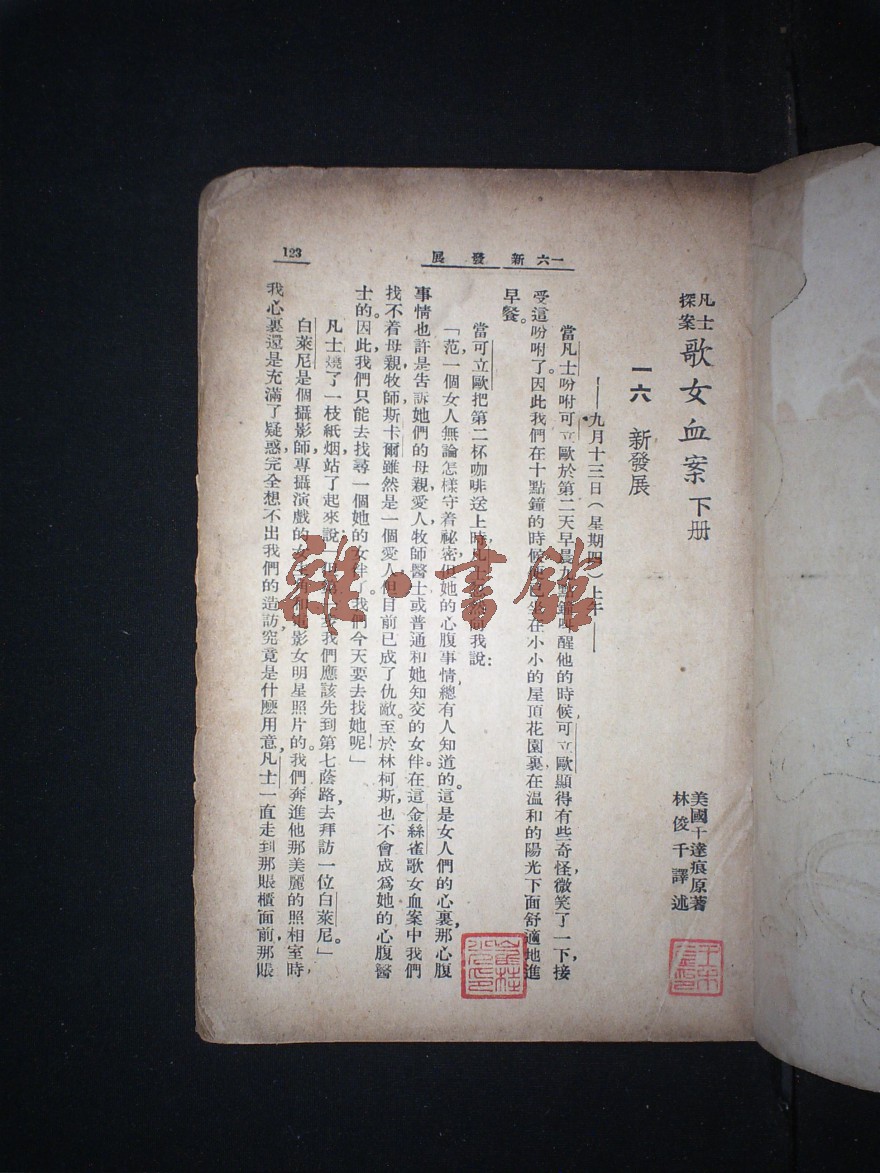 凡士探案 歌女血案 下册
美國 達痕原著
林俊千譯述
一六 新發展
——九月十三日(星期四)上午——
當凡士吩咐可立歐於第二天早晨九點鐘 醒他的時候,可立歐顯得有些奇怪,微笑了一下,接
受這吩咐了。因此我們在十點鐘的時候便已坐在小小的屋頂花園裏在溫和的陽光下面舒適地進
早餐。
當可立歐把第二杯咖啡送上時,凡士 向我說:
「范,一個女人無論怎樣守着祕密,但她的心腹事情總有人知道的。這是女人們的心裏,那心腹
事情也許是告訴她們的母親,愛人,牧師,醫士,或普通和她知交的女伴。在這金絲雀歌女血案中,我們
找不着母親,牧師;斯卡爾雖然是一個愛人,但目前已成了仇敵。至於林柯斯,也不會成爲她的心腹醫
士的。因此,我們只能去找尋一個她的女伴了。我們今天要去找她呢!」
凡士燒了一枝紙烟,站了起來說: 我們應該先到第七蔭路去拜訪一位白萊尼。」
白萊尼是個攝影師,專攝演戲的 影女明星照片的。我們奔進他那美麗的照相室時,
我心裏還是充滿了疑惑,完全想不出我們的造訪,究竟是什麽用意。凡士一直走到那賬櫃面前,那賬
一六 新發展
123
雜·書館